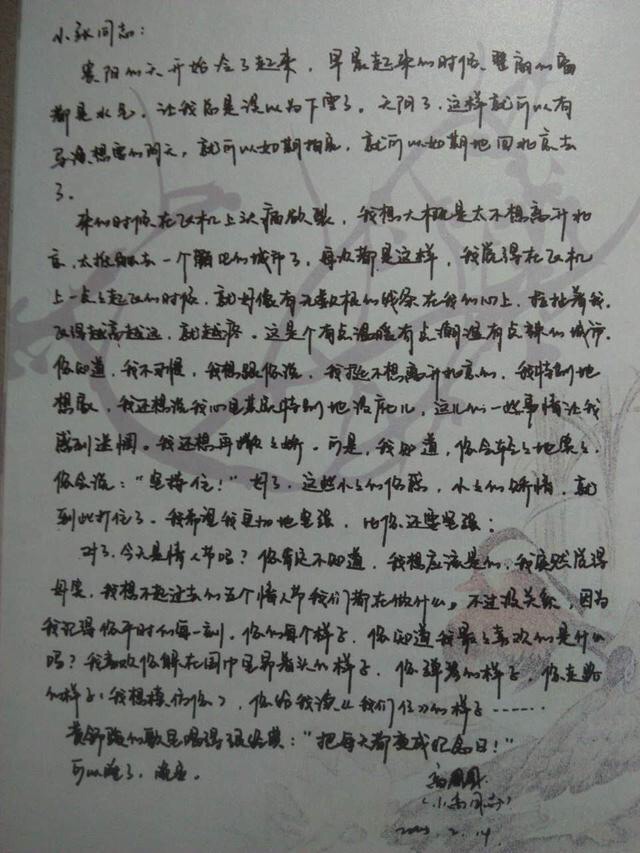 小张同志：
襄阳的天开始冷了起来，早晨起来的时候，整扇的窗
都是水气，让我总是误以为下雪了。天阴了，这样就可以有
导演想要的阴天，就可以如期拍完，就可以如期地回北京去
了。
来的时候在飞机上头痛欲裂，我想大概是太不想离开北
京，太抵触去一个陌生的城市了，每次都是这样，我觉得在飞机
上一点点起飞的时候，就好像有无数根的线条在我的心上，拉扯着我，
飞得越高越远，就越疼。这是个有点温暖有点潮湿有点辣的城市。
你知道，我不习惯，我想跟你说，我挺不想离开北京的，我特别地
想家，我还想说我心里其实特别地没底儿，这儿的一些事情让我
感到迷惘。我还想再撒撒娇。可是，我知道，你会轻轻地笑笑，
你会说："坚持住！"好了，这些小小的伤感，小小的矫情，就
到此打住了。我希望我更加地坚强，比你还要坚强；
对了，今天是情人节吗？你肯定不知道，我想应该是的，我突然觉得
我想不起过去的五个情人节我们都在做什么。不过没关系，因为
我记得你平时的每一刻，你的每个样子，你知道我最喜欢的是什么
吗？我喜欢你躲在围巾里昂着头的样子，你弹琴的样子，你走路
的样子（我想模仿你），你给我读《我们仨》的样子……
黄舒骏的歌里唱得很好其："把每天都变成纪念日！"
可以睡了，晚安。
（小高同志）
2. 14